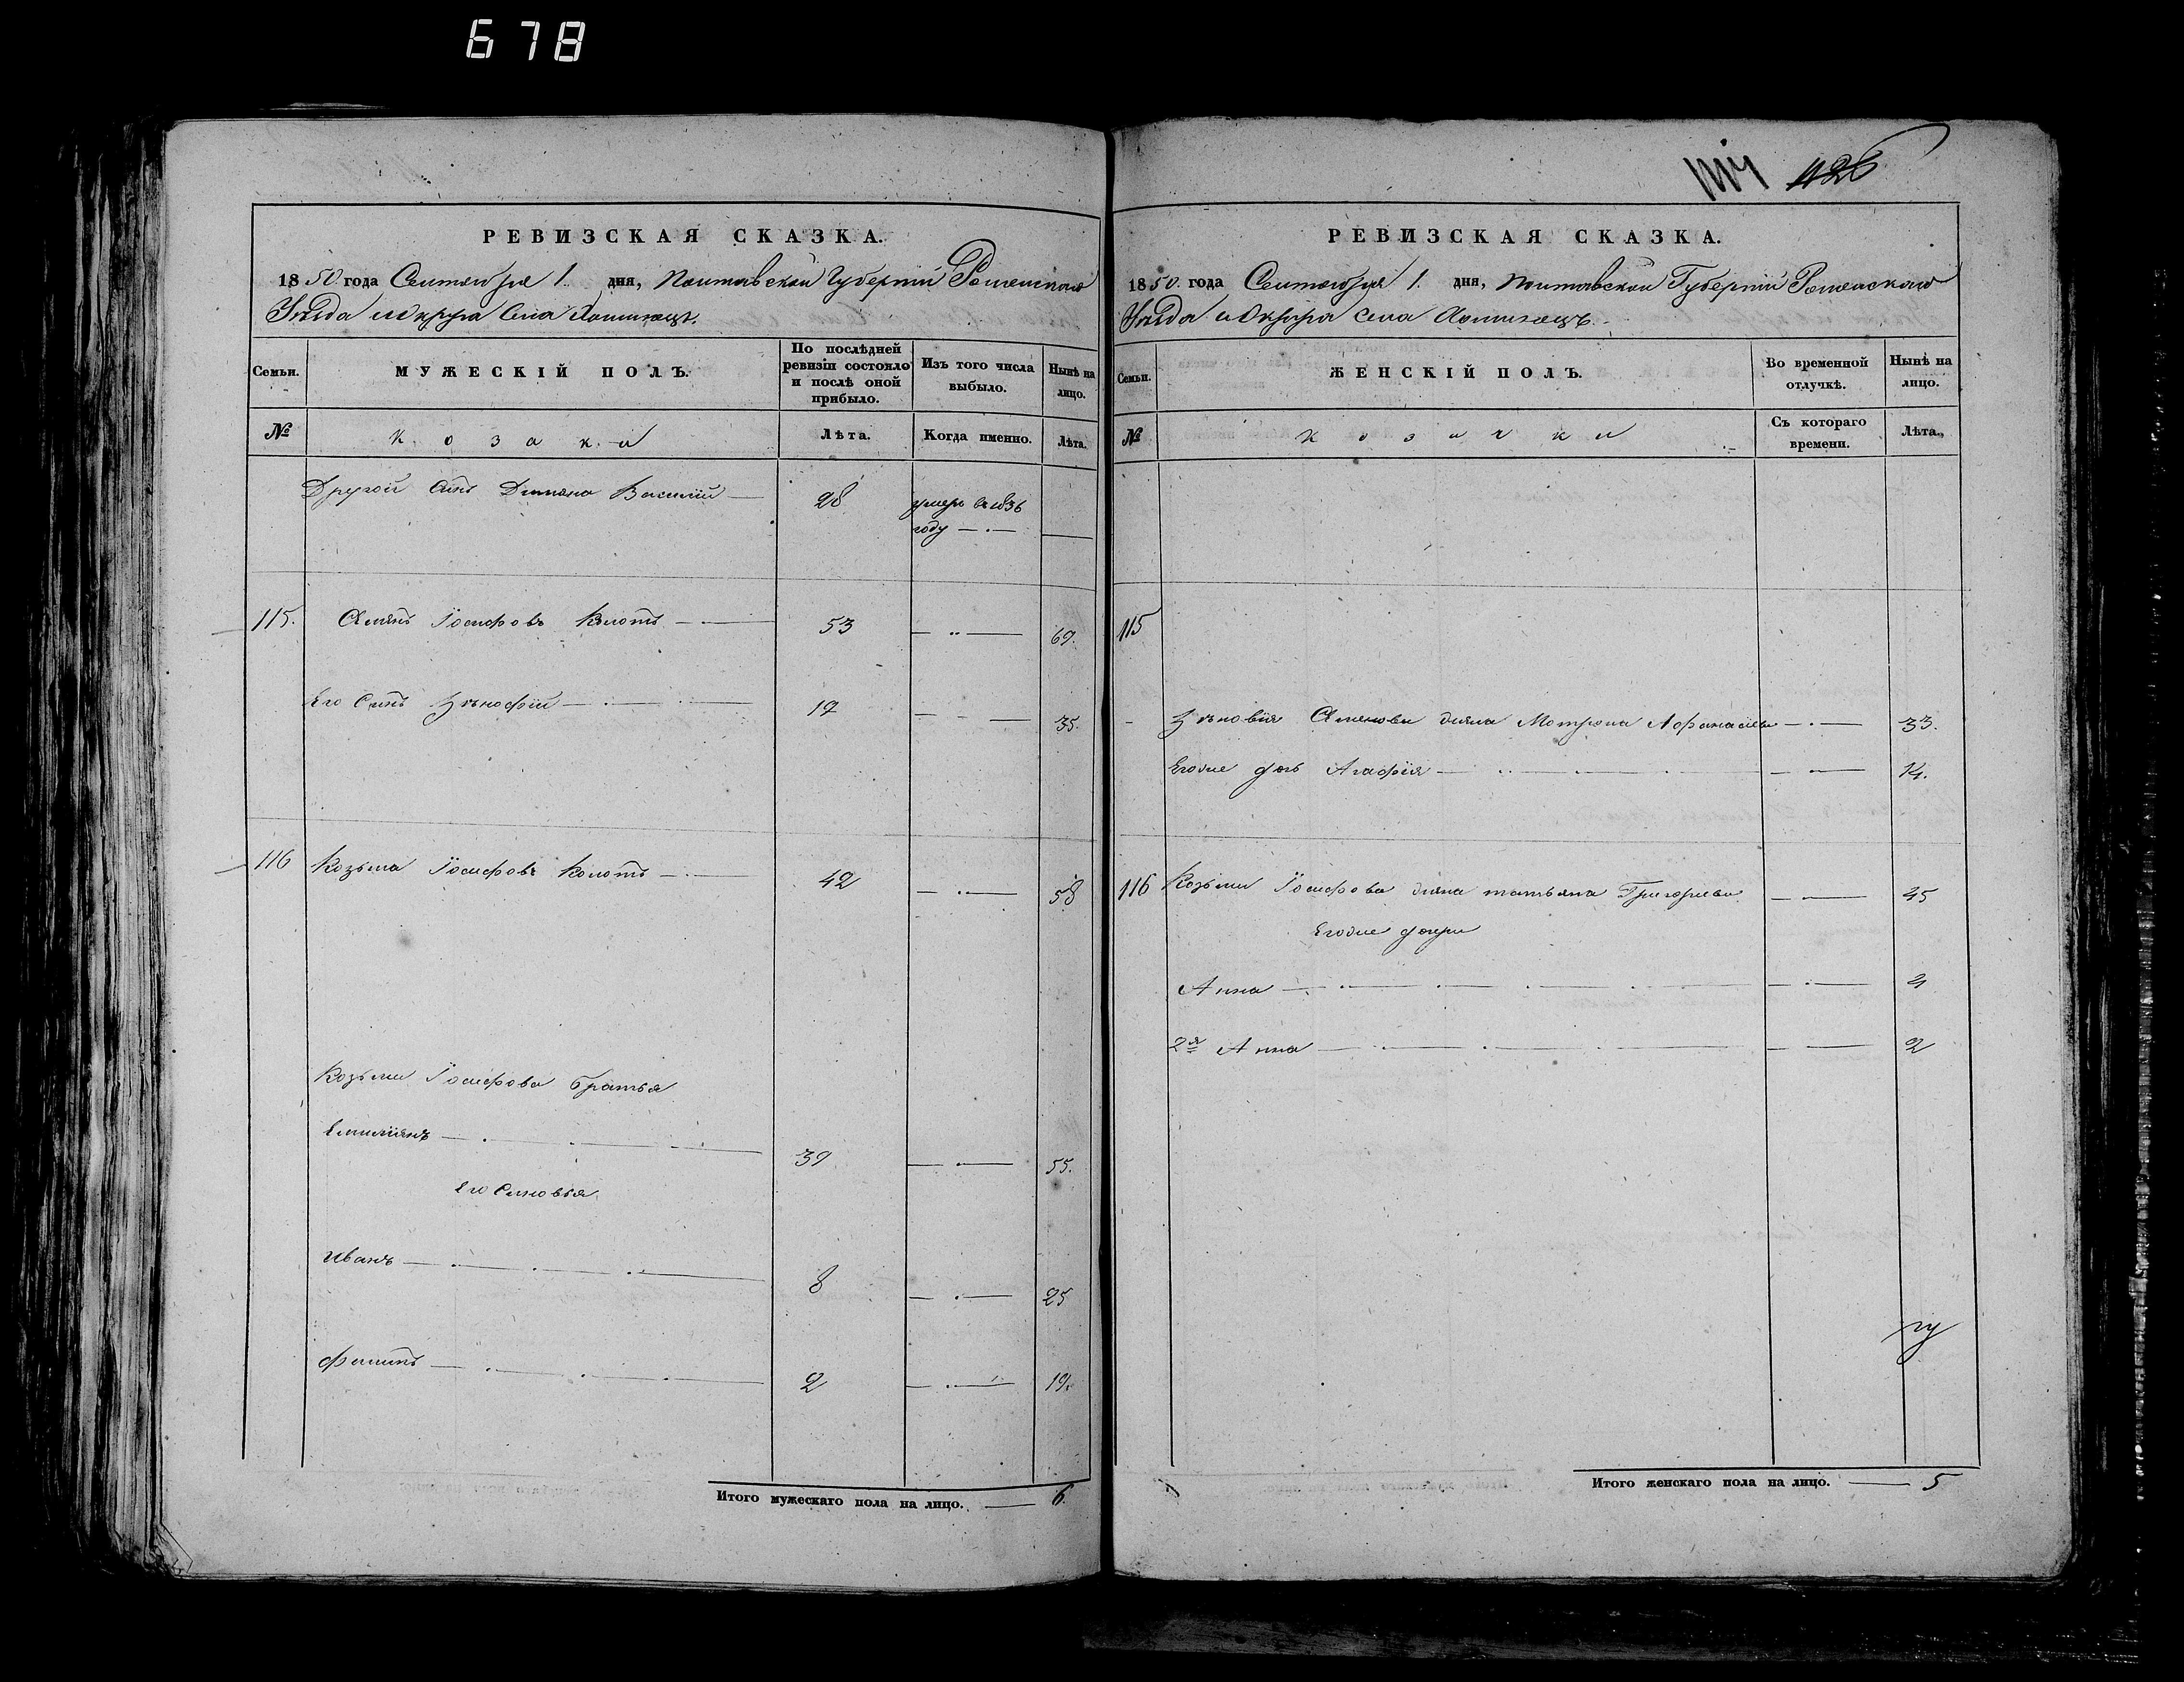 678
1114 1126
РЕВИЗСКАЯ СКАЗКА.
1850 года Сентября 1. дня, Полтавской Губернии Роменского
Уѣзда и Округа Села
Семьи.
МУЖЕСКІЙ ПОЛЪ.
По послѣдней ревизіи состояло и послѣ оной прибыло.
Изъ того числа выбыло.
Нынѣ на лицо.
№
козаки
Лѣта.
Когда именно.
Лѣта.
Другой Синъ Димяна Василій — 28 умеръ в 1836
году —·—
115. Семенъ Іосифовъ Колотъ — 53 — 69.
Его Синъ Зѣнофій — 19 — 35.
116 Козьма Іосифовъ Колотъ — 42 — 58
Козьми Іосифова братья
Емилиянъ — 39 — 55.
Его Синовья
Иванъ — 8 — 25
Филипъ — 2 — 19.
Итого мужескаго пола на лицо. — 6.
РЕВИЗСКАЯ СКАЗКА.
1850 года Сентября 1. дня, Полтавской Губерніи Роменского
Уѣзда и Округа Села
Семьи.
ЖЕНСКІЙ ПОЛЪ.
Во временной отлучкѣ.
Нынѣ на лицо.
№
козачки
Съ котораго времени.
Лѣта.
115
Зѣновія Семенова жена Мотрона Афанасиева — 33.
Егоже дочь Агафія — 14.
116 Козьми Іосифова жена татьяна Григориева — 45
Егоже дочери
Анна — 4
2я Анна — 2
Итого женскаго пола на лицо. — 5